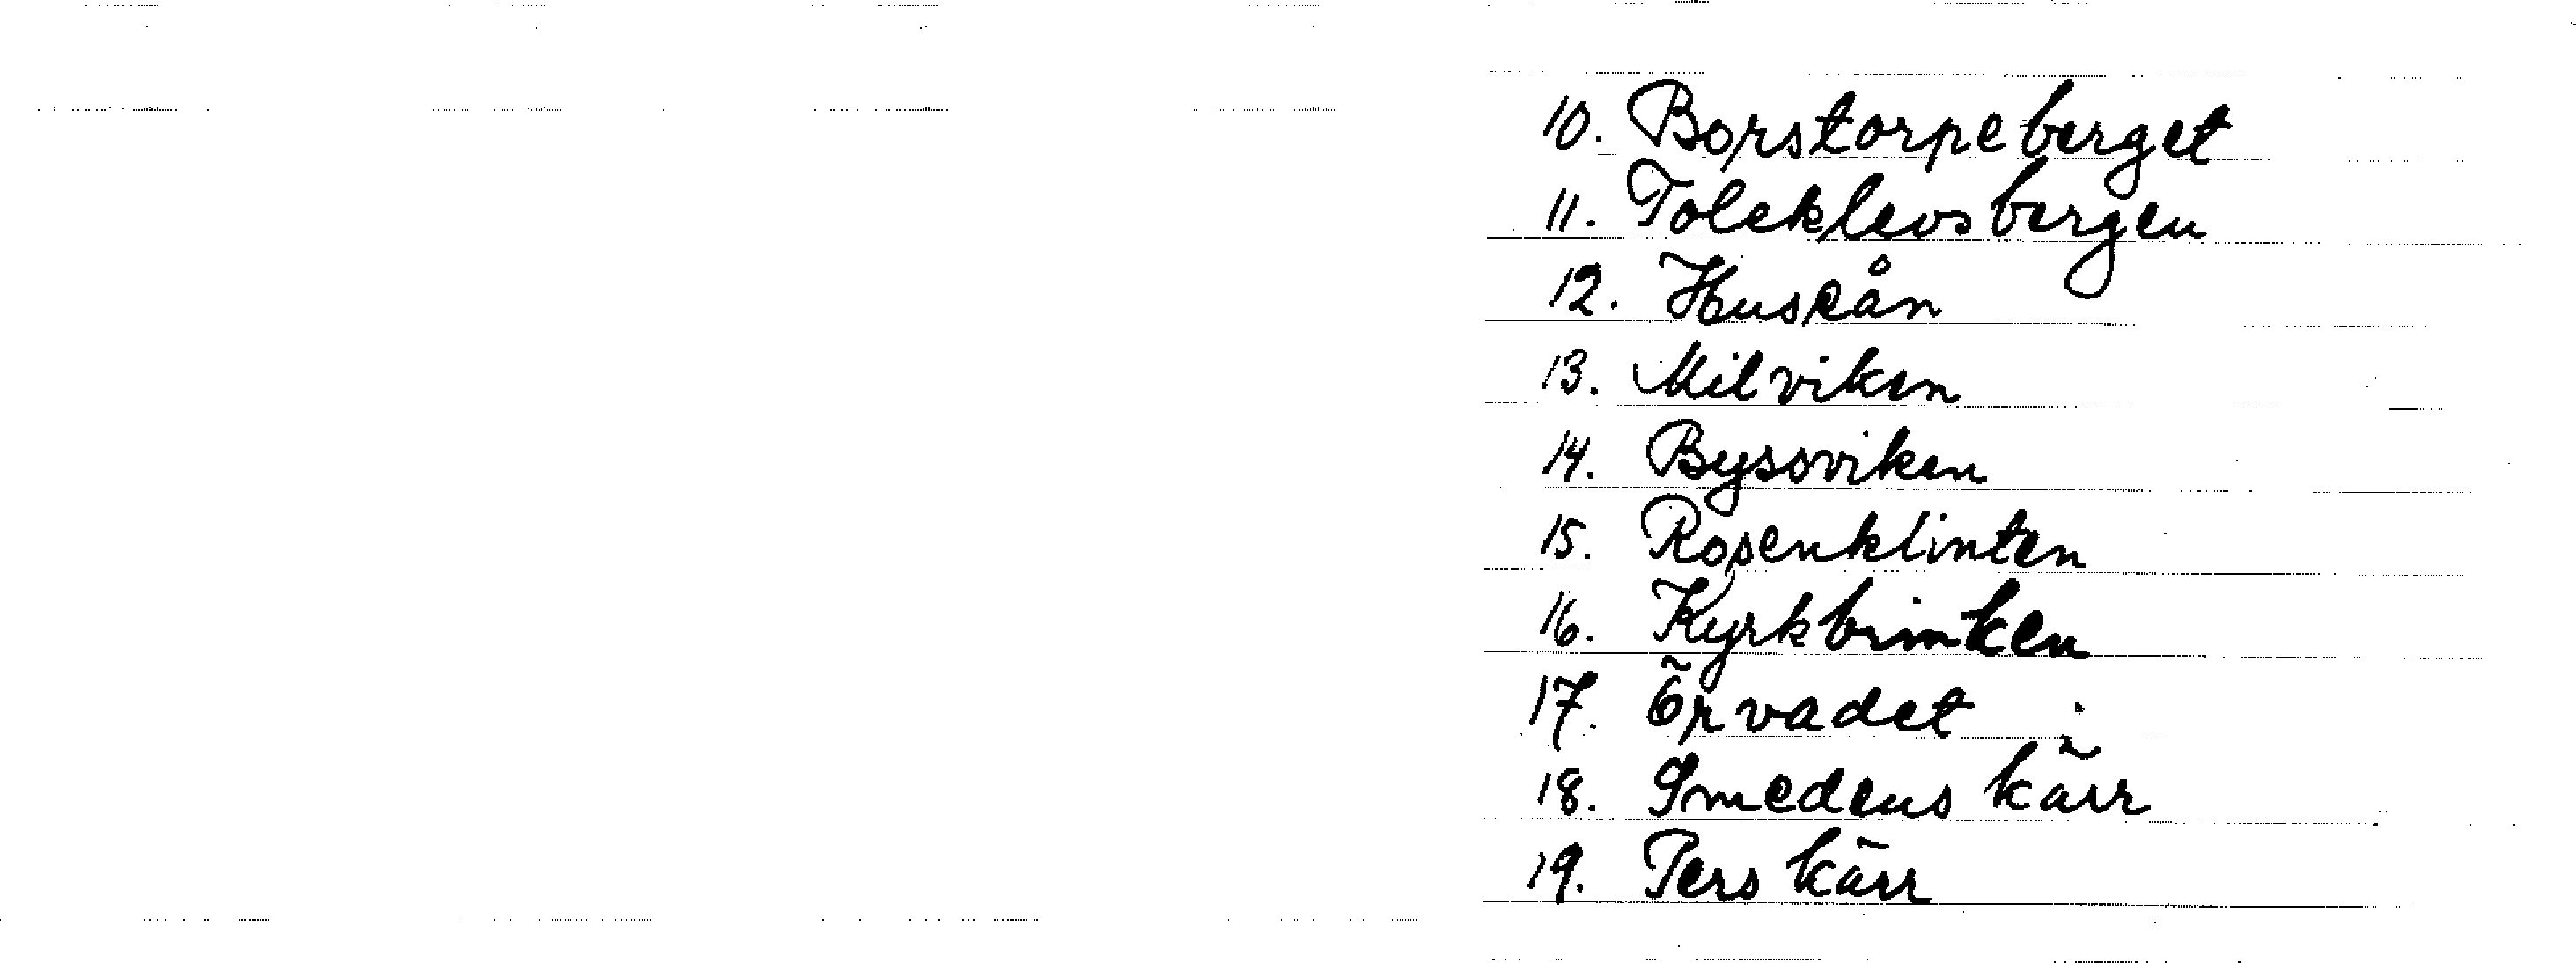 10. Borstorpeberget
11. Toleklevsbergen
12. Huseån
13. Milviken
14. Bysoviken
15. Rosenklinten
16. Kyrkbrinken
17. Örvadet
18. Smedens kärr
19. Pers kärr